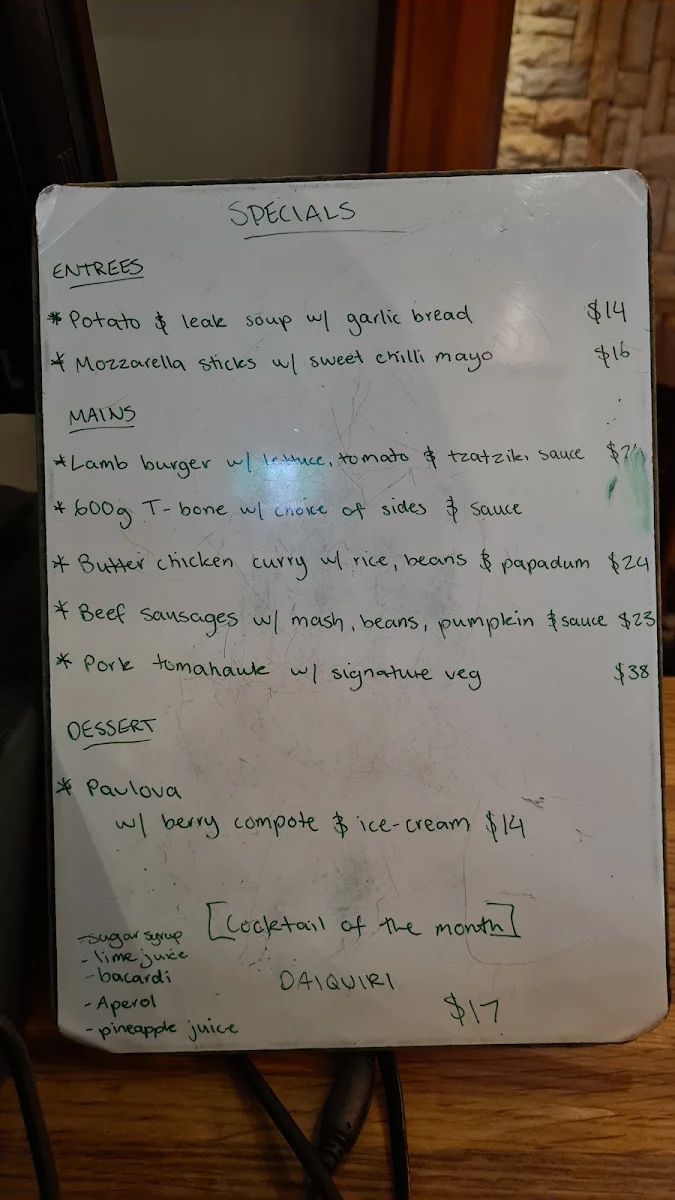 SPECIALS
ENTREES
* Potato & leak soup w/ garlic bread $14
* Mozzarella sticks w/ sweet chilli mayo $16
MAINS
* Lamb burger w/ lettuce, tomato & tzatziki sauce
* 600g T-bone w/ choice of sides & sauce
* Butter chicken curry w/ rice, beans & papadum $24
* Beef sausages w/ mash, beans, pumpkin & sauce $23
* Pork tomahawk w/ signature veg $38
DESSERT
* Pavlova
w/ berry compote & ice-cream $14
[Cocktail of the month]
DAIQUIRI
$17
-sugar syrup
- lime juice
-bacardi
- Aperol
- pineapple juice